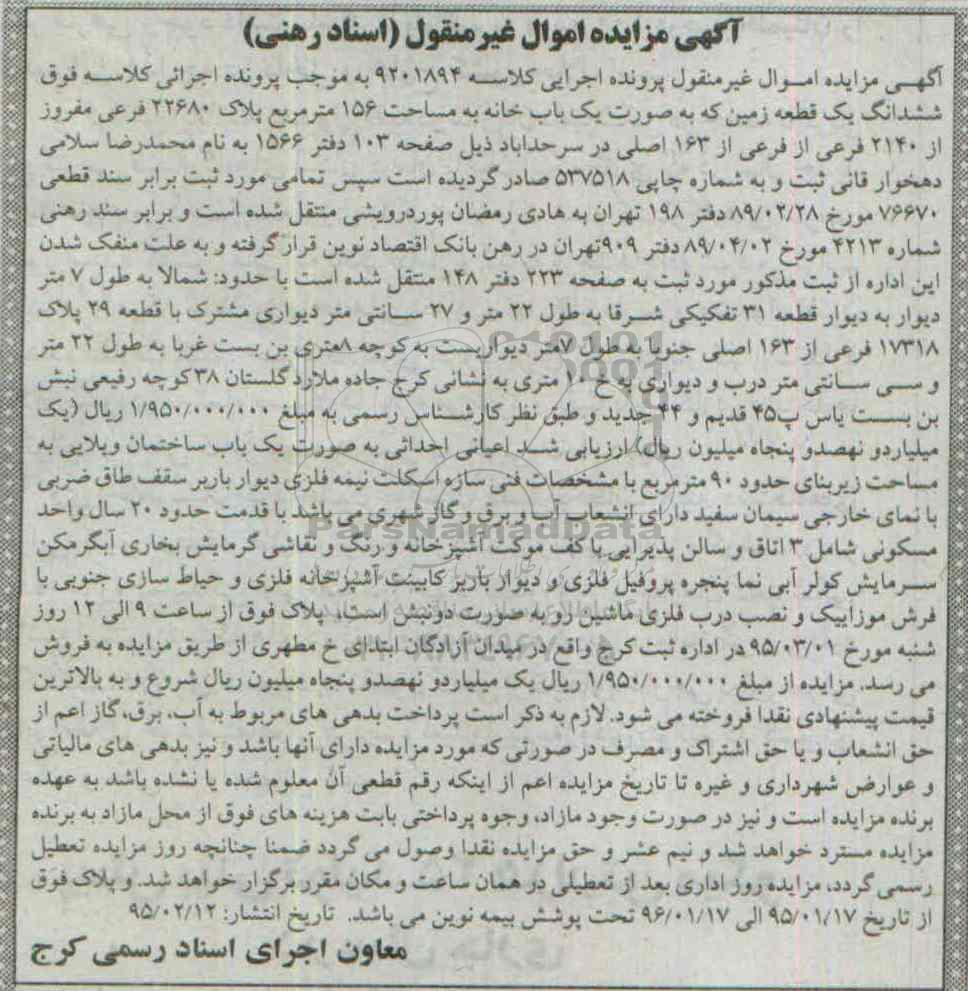 آگهی مزایده اموال غیرمنقول (اسناد رهنی)
آگهـی مزایده امـوال غیرمنقول پرونده اجرایی کلاسـه ۹۲۰۱۸۹۴ به موجب پرونده اجرائی کلاسـه فوق
ششدانگ یک قطعه زمین که به صورت یک باب خانه به مساحت ۱۵۶ مترمربع پلاک ۲۲۶۸۰ فرعی مفروز
از ۲۱۴۰ فرعی از فرعی از ۱۶۳ اصلی در سرحدآباد ذیل صفحه ۱۰۳ دفتر ۱۵۶۶ به نام محمدرضا سلامی
دهخوار قانی ثبت و به شماره چاپی ۵۳۷۵۱۸ صادر گردیده است سپس تمامی مورد ثبت برابر سند قطعی
۷۶۶۷۰ مورخ ۸۹/۰۲/۲۸ دفتر ۱۹۸ تهران به هادی رمضان پوردرویشی منتقل شده است و برابر سند رهنی
شماره ۴۲۱۳ مورخ ۸۹/۰۴/۰۲ دفتر ۹۰۹تهران در رهن بانک اقتصاد نوین قرار گرفته و به علت منفک شدن
این اداره از ثبت مذکور مورد ثبت به صفحه ۲۲۳ دفتر ۱۴۸ منتقل شده است با حدود: شمالا به طول ۷ متر
دیوار به دیوار قطعه ۳۱ تفکیکی شـرقا به طول ۲۲ متر و ۲۷ سـانتی متر دیواری مشترک با قطعه ۲۹ پلاک
۱۷۳۱۸ فرعی از ۱۶۳ اصلی جنوبا به طول ۷متر دیواریست به کوچه ۸متری بن بست غربا به طول ۲۲ متر
و سـی سـانتی متر درب و دیواری به خ ۱۰ متری به نشانی کرج جاده ملارد گلستان ۳۸ کوچه رفیعی نبش
بن بسـت یاس پ۴۵ قدیم و ۴۴ جدید و طبق نظر کارشـناس رسمی به مبلغ ۱/۹۵۰/۰۰۰/۰۰۰ ریال (یک
میلیاردو نهصدو پنجاه میلیون ریال) ارزیابی شـد اعیانی احداثی به صورت یک باب ساختمان ویلایی به
مساحت زیربنای حدود ۹۰ مترمربع با مشخصات فنی سازه اسکلت نیمه فلزی دیوار باربر سقف طاق ضربی
با نمای خارجی سیمان سفید دارای انشعاب آب و برق و گاز شهری می باشد با قدمت حدود ۲۰ سال واحد
مسکونی شامل ۳ اتاق و سالن پذیرایی با کف موکت آشپزخانه و رنگ و نقاشی گرمایش بخاری آبگرمکن
سـرمایش کولر آبی نما پنجره پروفیل فلزی و دیوار باربر کابینت آشپزخانه فلزی و حیاط سازی جنوبی با
فرش موزاییک و نصب درب فلزی ماشین رو به صورت دونبش است. پلاک فوق از ساعت ۹ الی ۱۲ روز
شنبه مورخ ۹۵/۰۳/۰۱ در اداره ثبت کرج واقع در میدان آزادگان ابتدای خ مطهری از طریق مزایده به فروش
می رسد. مزایده از مبلغ ۱/۹۵۰/۰۰۰/۰۰۰ ریال یک میلیاردو نهصدو پنجاه میلیون ریال شروع و به بالاترین
قیمت پیشنهادی نقدا فروخته می شود. لازم به ذکر است پرداخت بدهی های مربوط به آب، برق، گاز اعم از
حق انشعاب و یا حق اشتراک و مصرف در صورتی که مورد مزایده دارای آنها باشد و نیز بدهی های مالیاتی
و عوارض شهرداری و غیره تا تاریخ مزایده اعم از اینکه رقم قطعی آن معلوم شده یا نشده باشد به عهده
برنده مزایده است و نیز در صورت وجود مازاد، وجوه پرداختی بابت هزینه های فوق از محل مازاد به برنده
مزایده مسترد خواهد شد و نیم عشر و حق مزایده نقدا وصول می گردد ضمنا چنانچه روز مزایده تعطیل
رسمی گردد، مزایده روز اداری بعد از تعطیلی در همان ساعت و مکان مقرر برگزار خواهد شد. و پلاک فوق
از تاریخ ۹۵/۰۱/۱۷ الی ۹۶/۰۱/۱۷ تحت پوشش بیمه نوین می باشد. تاریخ انتشار: ۹۵/۰۲/۱۲
معاون اجرای اسناد رسمی کرج
ParsNamadData